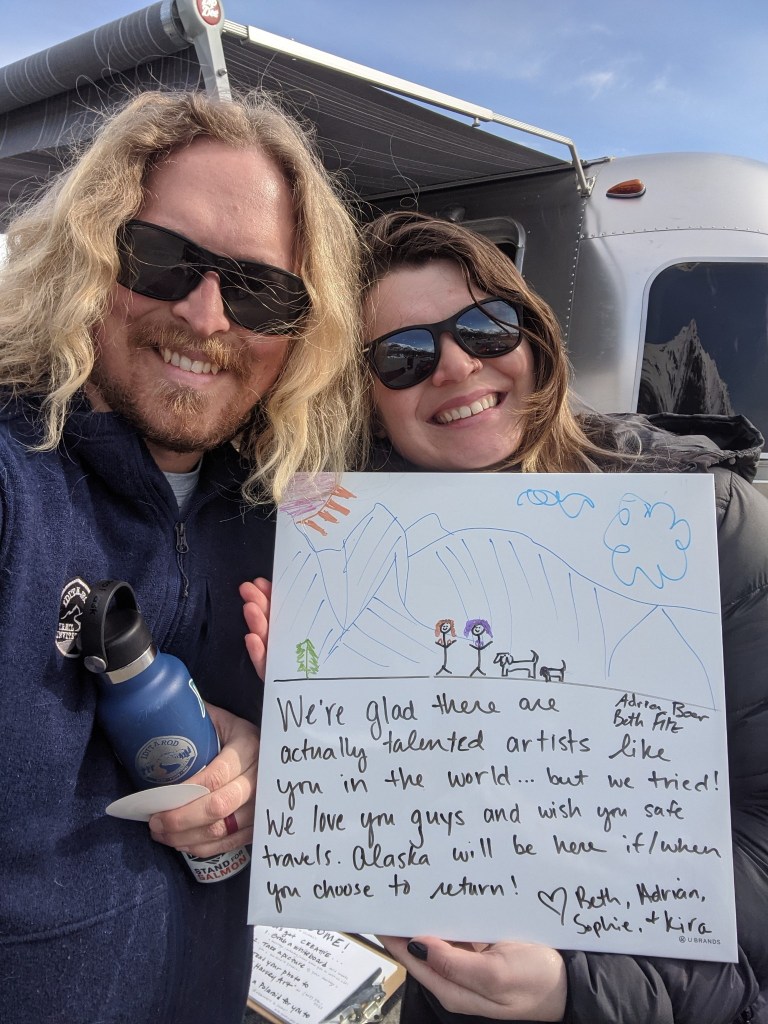 IDITAROD
TRAIL
INVITATIONAL
IDITAROD
STAND FOR
SALMON
Adrian Boer
Beth Fitz
We're glad there are
actually talented artists like
you in the world... but we tried!
We love you guys and wish you safe
travels. Alaska will be here if/when
you choose to return!
♡ Beth, Adrian,
Sophie, + Kira
U BRANDS